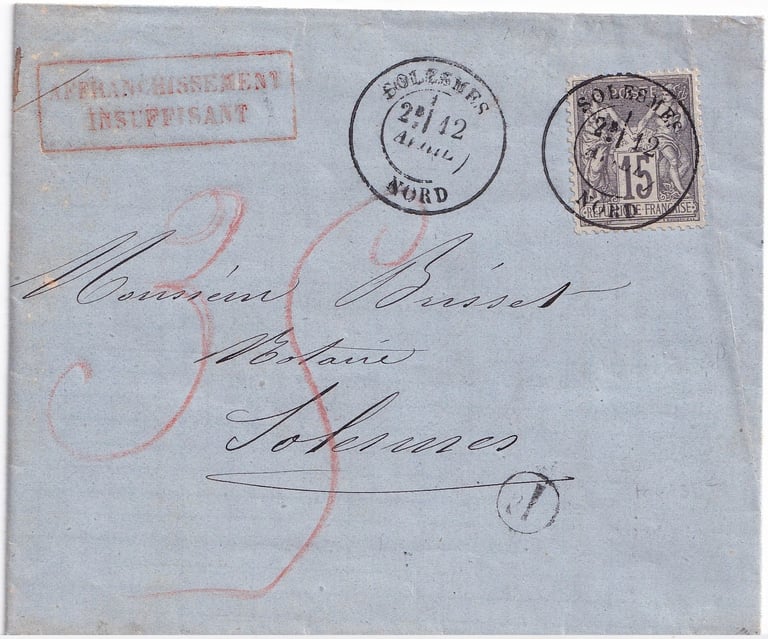 AFFRANCHISSEMENT
INSUFFISANT
SOLESMES
1
2E
12
AVRIL
NORD
SOLESMES
1
2E
12
NORD
15
REPUBLIQUE FRANCAISE
35
Monsieur Brisset
Notaire
Solesmes